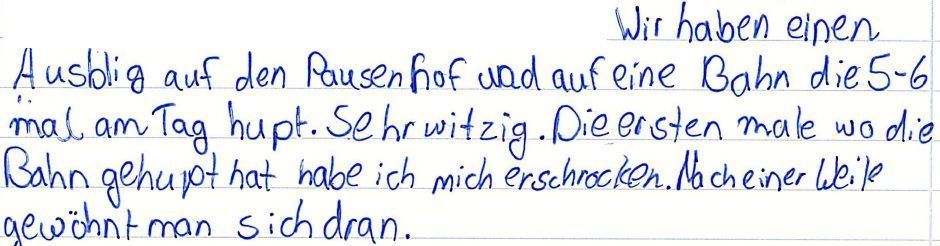 Wir haben einen
Ausblig auf den Pausenhof und auf eine Bahn die 5-6
mal am Tag hupt. Sehr witzig. Die ersten male wo die
Bahn gehupt hat habe ich mich erschrocken. Nach einer Weile
gewöhnt man sich dran.